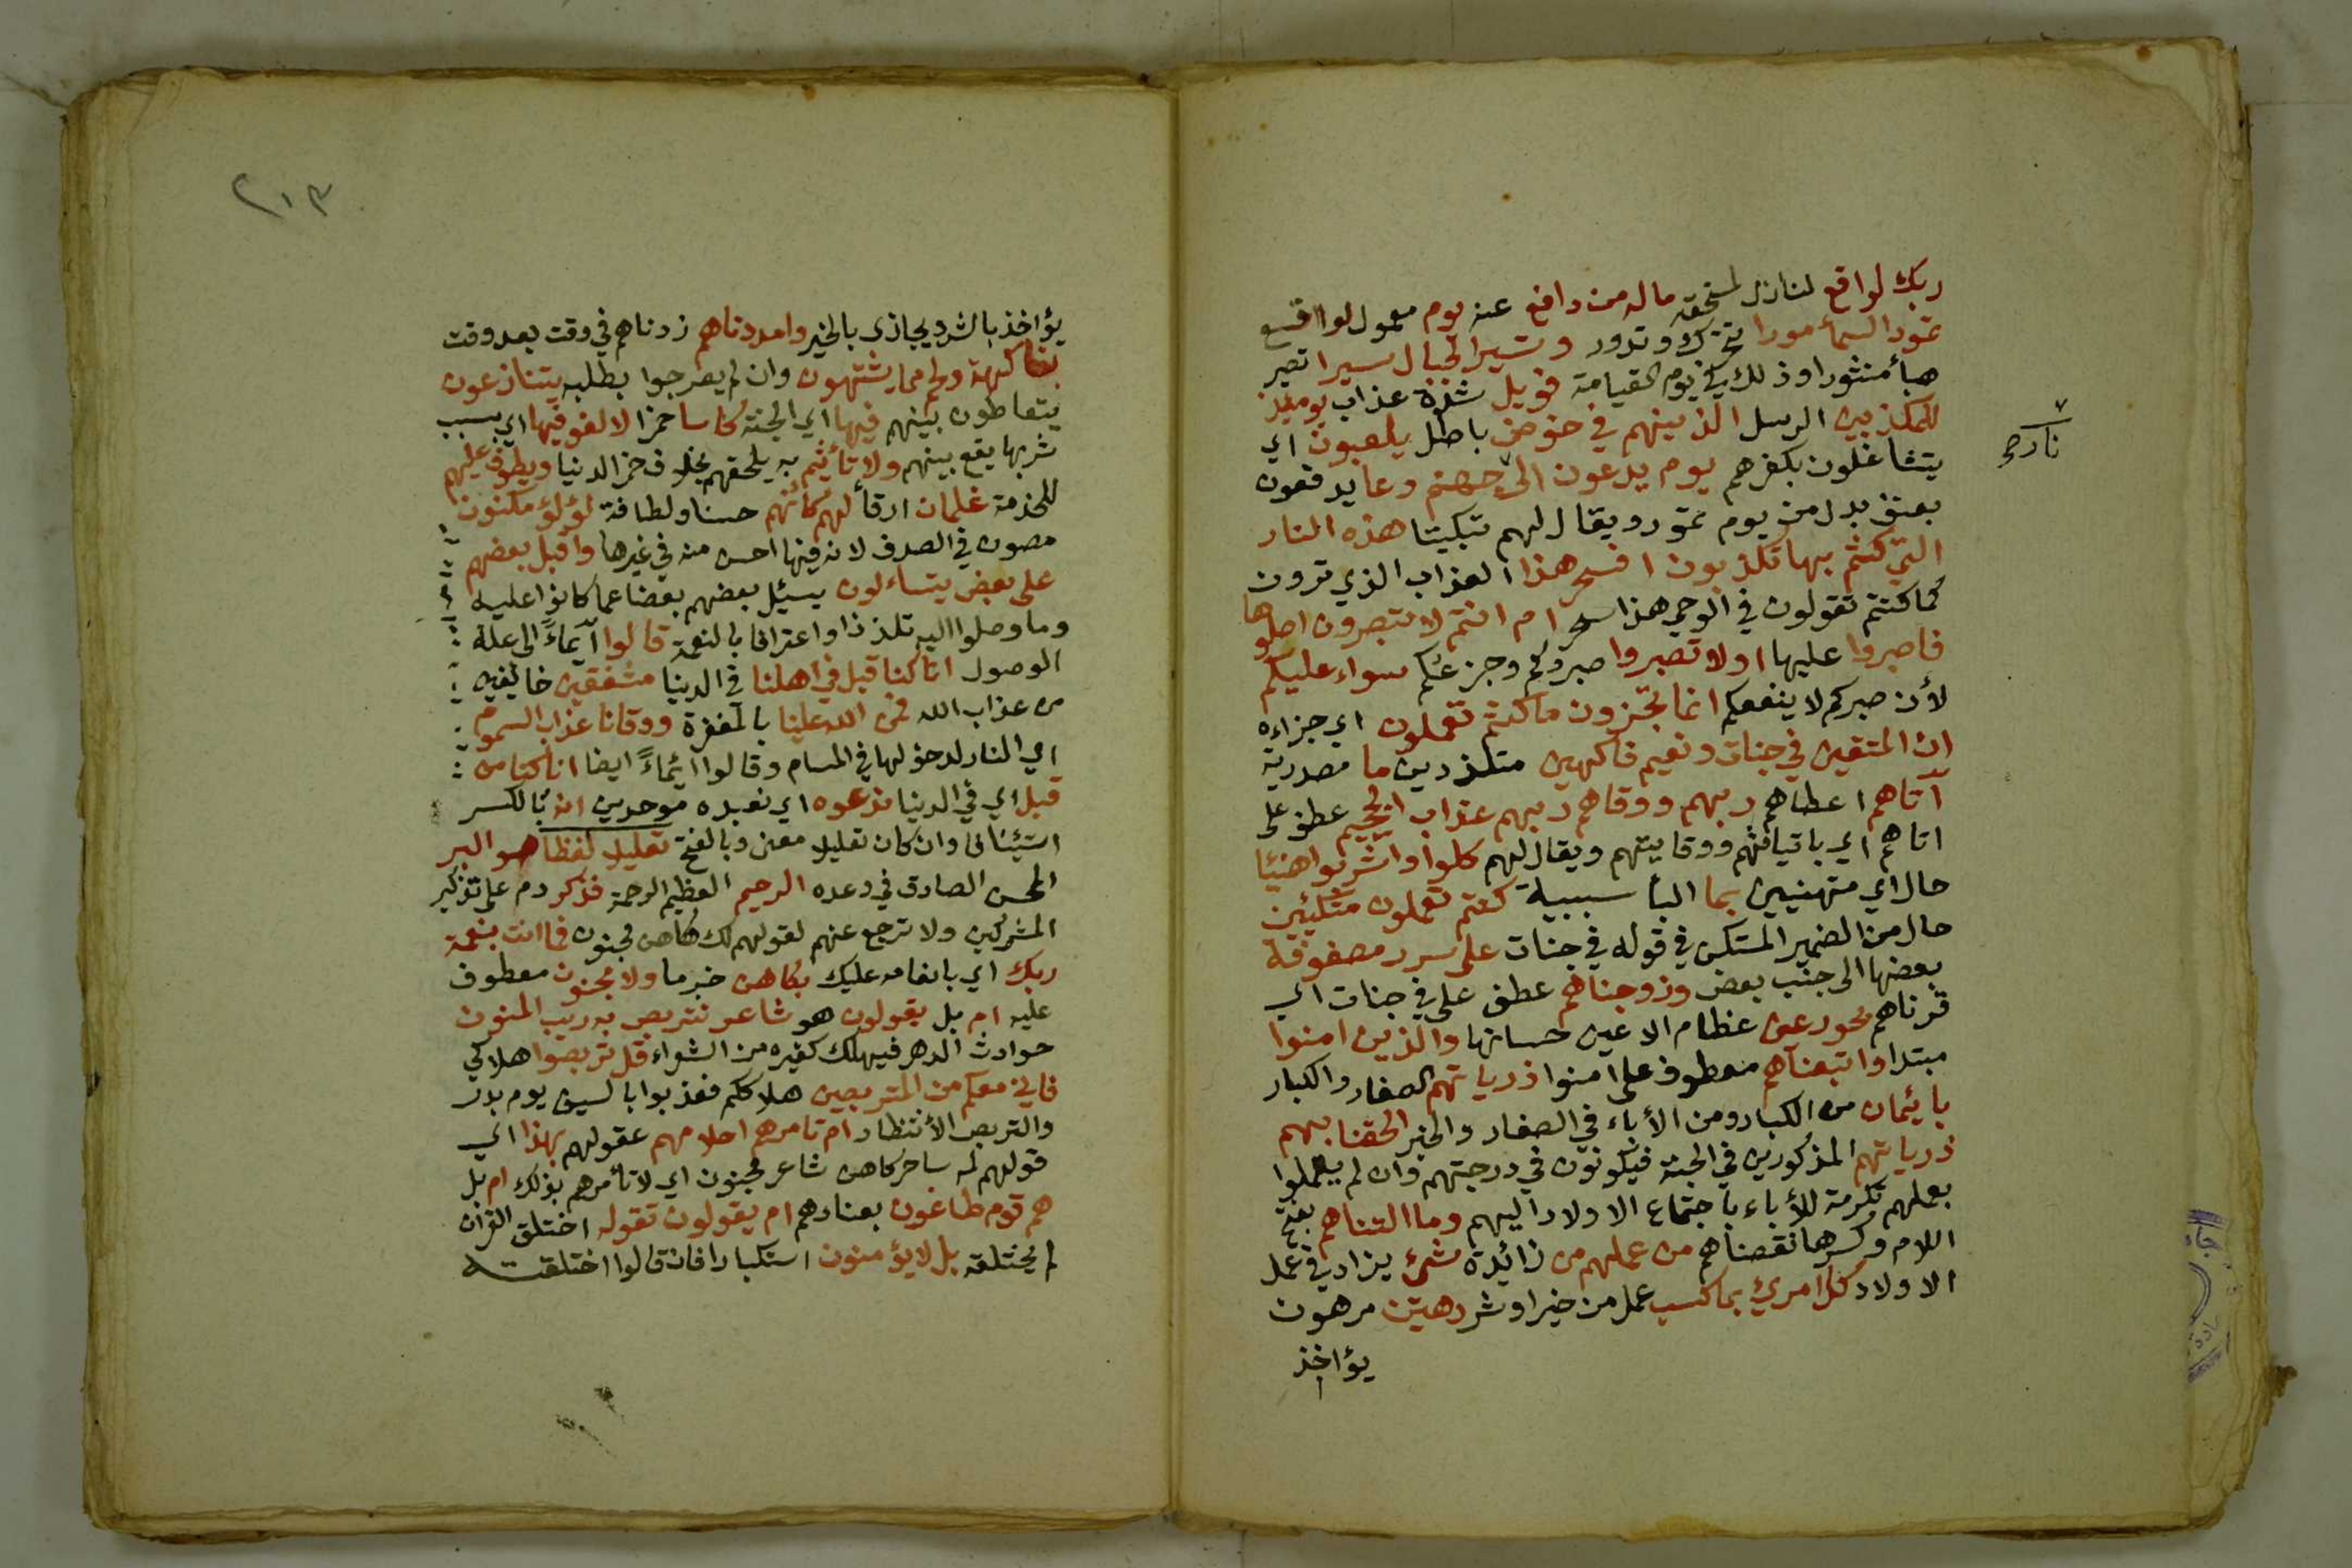 ربك لواقع لنازل لمستحقه ماله من دافع عنه يوم معمول لواقع
تمور السمأ مورا تتحرك وتدور وتسير الجبال سيرا تصير
هبأ منثورا وذلك في يوم القيامة فويل شدة عذاب يومئذ
للمكذبين الرسل الذينهم في خوض باطل يلعبون اي
يتشاغلون بكفرهم يوم يدعون الى جهنم دعا يدفعون
نار ح
بعنف بدل من يوم تمور ويقال لهم تبكيتا هذه النار
التي كنتم بها تكذبون افسحر هذا العذاب الذي ترون
كما كنتم تقولون في الوحي هذا سحر ام انتم لا تبصرون اصلوها
فاصبروا عليها او لا تصبروا صبركم وجزعكم سواء عليكم
لأن صبركم لا ينفعكم انما تجزون ما كنتم تعملون اي جزاءه
ان المتقين في جنات ونعيم فاكهين متلذذين ما مصدرية
آتاهم اعطاهم ربهم ووقاهم ربهم عذاب الجحيم عطف على
اتاهم اي باتيانهم ووقايتهم ويقال لهم كلوا واشربوا هنيئا
حال اي متهنيين بما البأ سببية كنتم تعملون متكئين
حال من الضمير المستكن في قوله في جنات على سرر مصفوفة
بعضها الى جنب بعض وزوجناهم عطف على في جنات اي
قرناهم بحور عين عظام الاعين حسانها والذين امنوا
مبتدا واتبعناهم معطوف على امنوا ذرياتهم الصغار والكبار
بايئمان من الكبار ومن الأباء في الصغار والخبر الحقنا بهم
ذرياتهم المذكورين في الجنة فيكونون في درجتهم وان لم يعملوا
بعملهم تكرمة للأباء باجتماع الاولاد اليهم وما التناهم بفتح
اللام وكسرها نقصناهم من عملهم من زائدة شئ يزاد في عمل
الاولاد كل امرئ بما كسب عمل من خير او شر رهين مرهون
يؤاخذ
٢١٣
يؤاخذ بالشر ويجازى بالخير وامددناهم زدناهم في وقت بعد وقت
بفاكهة ولحم مما يشتهون وان لم يصرحوا بطلبه يتنازعون
يتعاطون بينهم فيها اي الجنة كاسا خمرا لا لغو فيها اي بسبب
شربها يقع بينهم ولا تأثيم به يلحقهم بخلاف خمر الدنيا ويطوف عليهم
للخدمة غلمان ارقأ لهم كأنهم حسنا ولطافة لؤلؤ مكنون
مصون في الصدف لانه فيها احسن منه في غيرها واقبل بعضهم
على بعض يتساءلون يسئل بعضهم بعضا عما كانوا عليه
وما وصلوا اليه تلذذا واعترافا بالنعمة قالوا ايماءً الى علة
الوصول انا كنا قبل في اهلنا في الدنيا مشفقين خائفين
من عذاب الله فمن الله علينا بالمغفرة ووقانا عذاب السموم
اي النار لدخولها في المسام وقالوا ائماءً ايضا انا كنا من
قبل اي في الدنيا ندعوه اي نعبده موحدين انه بالكسر
استئنافا وان كان تعليلا معنى وبالفتح تعليلا لفظا هو البر
المحسن الصادق في وعده الرحيم العظيم الرحمة فذكر دم على تذكير
المشركين ولا ترجع عنهم لقولهم لك كاهن مجنون فما انت بنعمة
ربك اي بانعامه عليك بكاهن خبر ما ولا مجنون معطوف
عليه ام بل يقولون هو شاعر نتربص به ريب المنون
حوادث الدهر فيهلك كغيره من الشعراء قل تربصوا هلاكي
فاني معكم من المتربصين هلاككم فعذبوا بالسيف يوم بدر
والتربص الأنتظار ام تامرهم احلامهم عقولهم بهذا اي
قولهم له ساحر كاهن شاعر مجنون اي لا تأمرهم بذلك ام بل
هم قوم طاغون بعنادهم ام يقولون تقوله اختلق القرآن
لم يختلقه بل لا يؤمنون استكبارا فان قالوا اختلقته